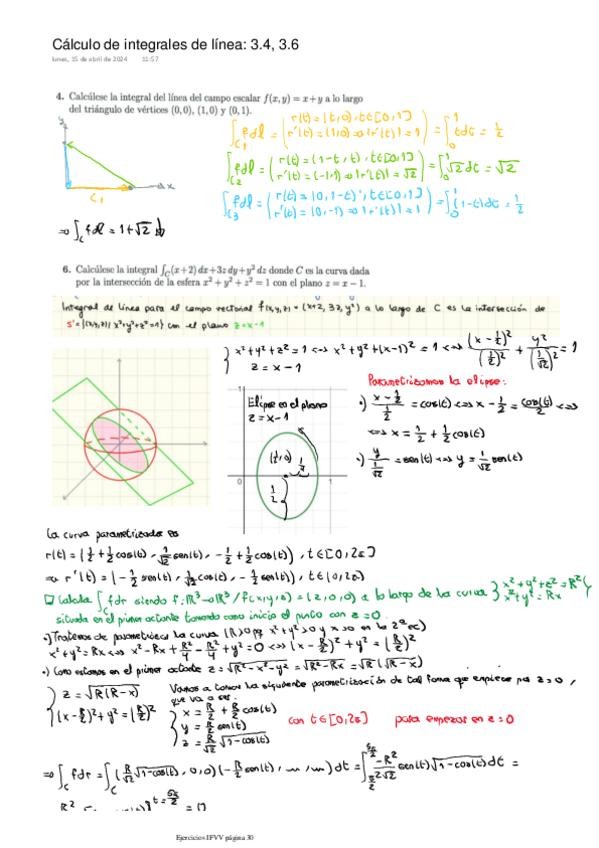 Cálculo de integrales de línea: 3.4, 3.6
lunes, 15 de abril de 2024 11:57
4. Calcúlese la integral del línea del campo escalar f(x, y) = x + y a lo largo
del triángulo de vértices (0,0), (1,0) y (0,1).
∫_C₁ f dl = (r(t) = (t,0), t∈[0,1] / r'(t) = (1,0) ⇒ |r'(t)| = 1) = ∫₀¹ t dt = 1/2
∫_C₂ f dl = (r(t) = (1-t, t), t∈[0,1] / r'(t) = (-1,1) ⇒ |r'(t)| = √2) = ∫₀¹ √2 dt = √2
∫_C₃ f dl = (r(t) = (0, 1-t), t∈[0,1] / r'(t) = (0,-1) ⇒ |r'(t)| = 1) = ∫₀¹ (1-t) dt = 1/2
y
x
C₁
⇒ ∫_C f dl = 1+√2
6. Calcúlese la integral ∫_C (x + 2) dx + 3z dy + y² dz donde C es la curva dada
por la intersección de la esfera x² + y² + z² = 1 con el plano z = x − 1.
Integral de línea para el campo vectorial f(x,y,z) = (x+2, 3z, y²) a lo largo de C es la intersección de
S = {(x,y,z) / x²+y²+z²=1} con el plano z=x-1
x²+y²+z²=1 <=> x²+y²+(x-1)² = 1 <=> (x-1/2)²/(1/2)² + y²/(1/√2)² = 1
z = x-1
Parametrizamos la elipse:
•) (x-1/2)/(1/2) = cos(t) <=> x - 1/2 = cos(t)/2 <=>
<=> x = 1/2 + 1/2 cos(t)
•) y/(1/√2) = sen(t) <=> y = 1/√2 sen(t)
Elipse en el plano
z = x-1
(1/2, 0)
1/2
0
1
La curva parametrizada es
r(t) = (1/2 + 1/2 cos(t), 1/√2 sen(t), -1/2 + 1/2 cos(t)), t∈[0,2π]
⇒ r'(t) = (-1/2 sen(t), 1/√2 cos(t), -1/2 sen(t)), t∈(0,2π)
□ Calcula ∫_C f dr siendo f: R³→R³ / f(x,y,z) = (z,0,0) a lo largo de la curva {x²+y²+z² = R² / x²+y² = Rx
situada en el primer octante tomando como inicio el punto con z=0.
x²+y² = Rx <=> x² - Rx + R²/4 - R²/4 + y² = 0 <=> (x - R/2)² + y² = (R/2)²
•) Como estamos en el primer octante z = √(R²-x²-y²) = √(R²-Rx) = √(R(R-x))
{z = √(R(R-x))
(x-R/2)² + y² = (R/2)²
Vamos a tomar la siguiente parametrización de tal forma que empiece por z=0,
que va a ser:
{x = R/2 + R/2 cos(t)
y = R/2 sen(t)
z = R/√2 √(1-cos(t))
con t∈[0,2π]
para empezar en z=0
⇒ ∫_C f dr = ∫_C (R/√2 √(1-cos(t)), 0, 0)(-R/2 sen(t), ~, ~) dt = ∫ -R²/2√2 sen(t) √(1-cos(t)) dt =
Ejercicios IFVV página 30